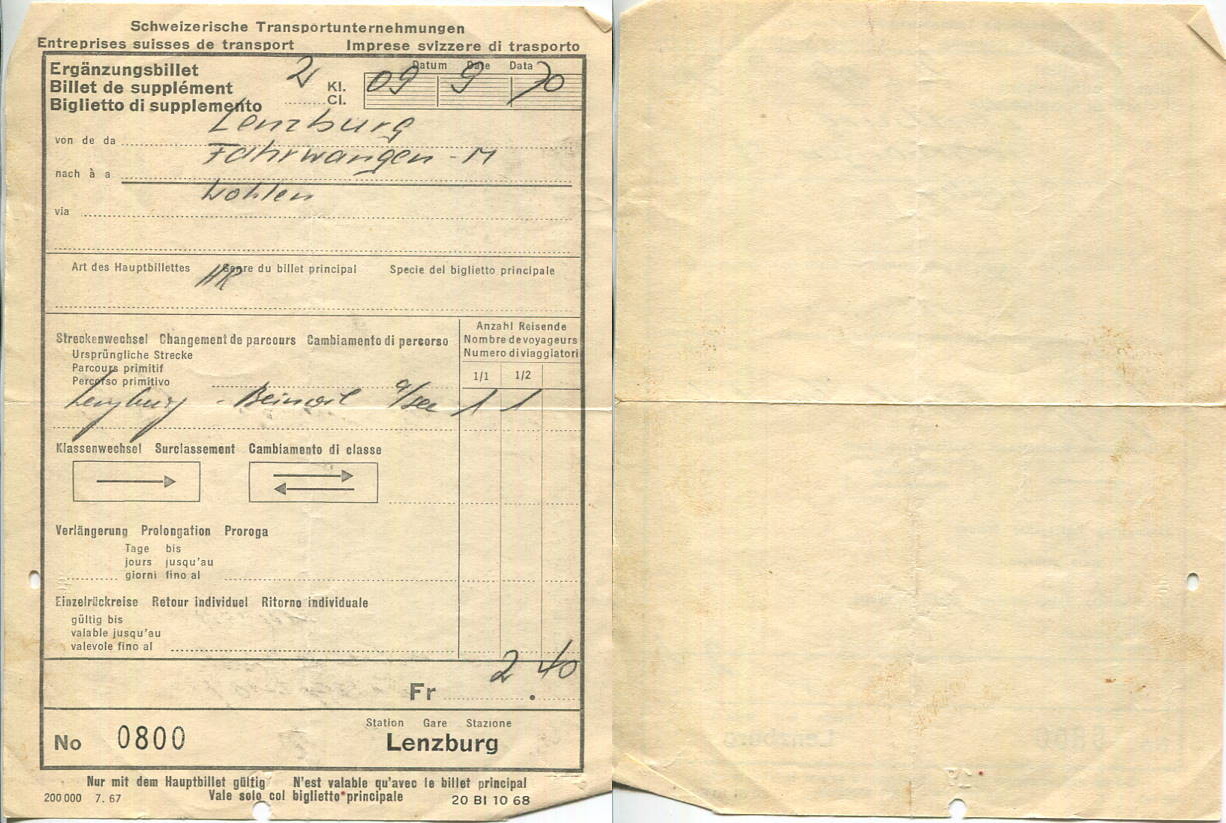 Schweizerische Transportunternehmungen
Entreprises suisses de transport Imprese svizzere di trasporto
Ergänzungsbillet
Billet de supplément
Biglietto di supplemento
2 Kl.
Cl.
Datum Date Data
09 9 70
von de da Lenzburg
nach à a Fahrwangen-M
via Wohlen
Art des Hauptbillettes Genre du billet principal Specie del biglietto principale
HR
Streckenwechsel Changement de parcours Cambiamento di percorso
Ursprüngliche Strecke
Parcours primitif
Percorso primitivo
Lenzburg - Beinwil a/See
Anzahl Reisende
Nombre de voyageurs
Numero di viaggiatori
1/1 1/2
1 1
Klassenwechsel Surclassement Cambiamento di classe
Verlängerung Prolongation Proroga
Tage bis
jours jusqu'au
giorni fino al
Einzelrückreise Retour individuel Ritorno individuale
gültig bis
valable jusqu'au
valevole fino al
Fr 2.40
No 0800
Station Gare Stazione
Lenzburg
Nur mit dem Hauptbillet gültig N'est valable qu'avec le billet principal
Vale solo col biglietto principale
200 000 7. 67
20 BI 10 68